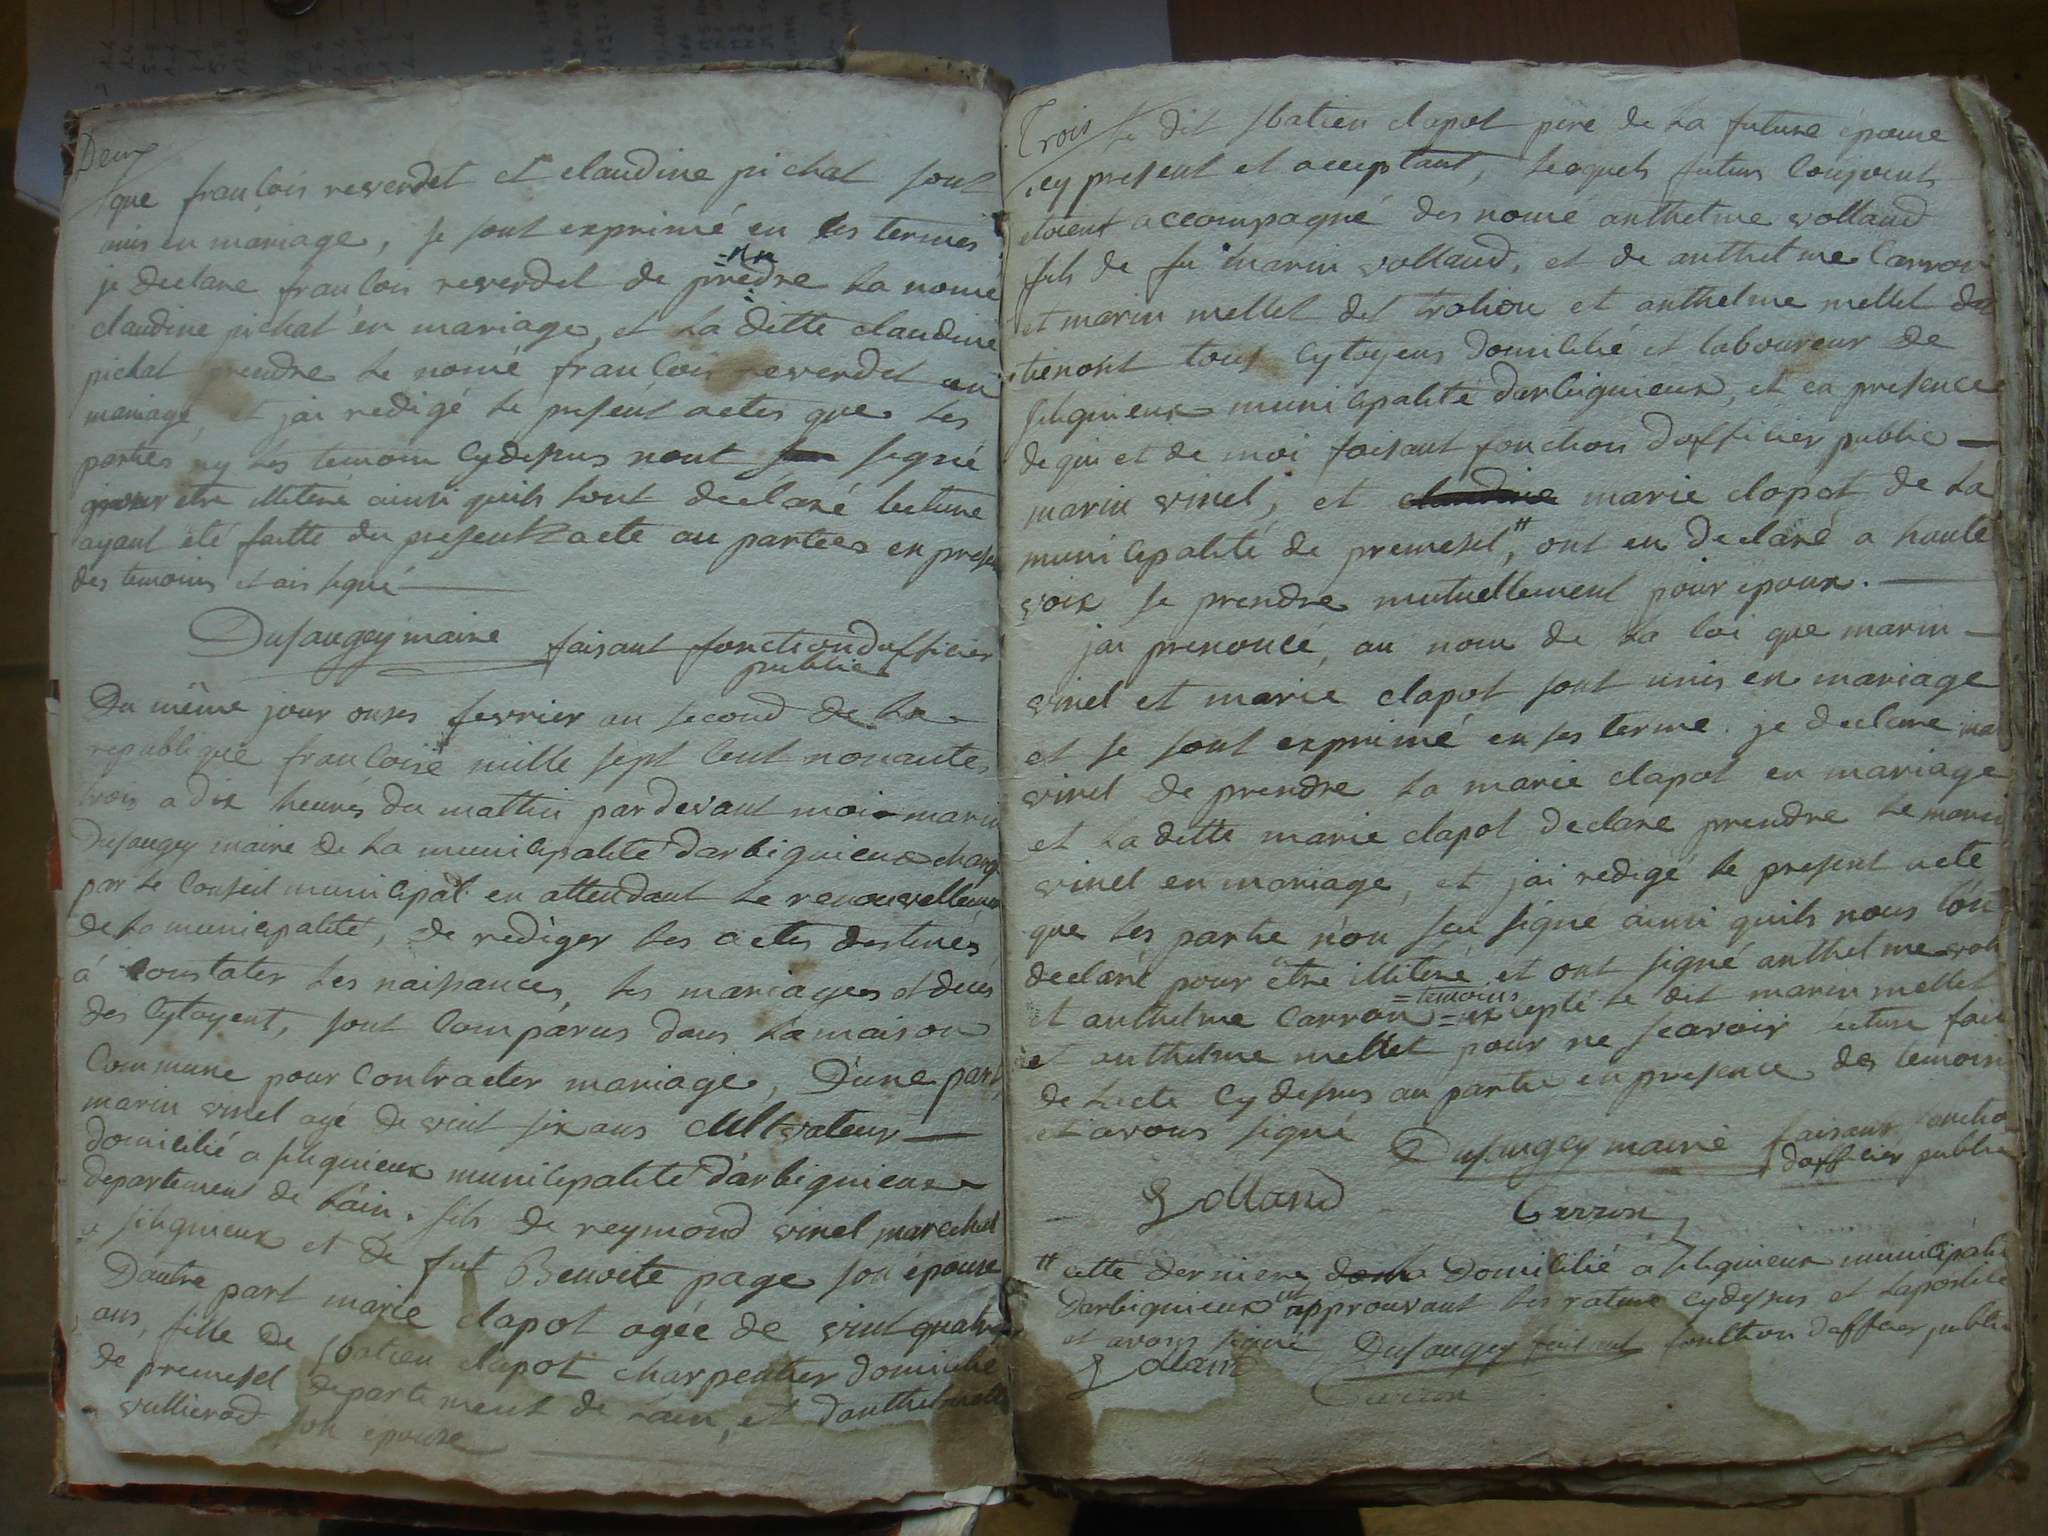 Deux
que francois reverdet et claudine pichat sont
unis en mariage, se sont exprimé en les termes
je declare francois reverdet de predre la nomé
claudine pichat en mariage, et la ditte claudine
pichat prendre le nomé francois reverdet en
mariage, et jai redigé le present actes que les
parties ny les temoin cydessus nont signé
pour etre illiteré ainsi quils lont declaré lecture
ayant été faitte du present acte au parties en presen
des temoins et ais signé
Dusaugey maire faisant fonction dofficier
public
Du même jour onzes fevrier an second de la
republique francoise mille sept cent nonante
trois a dix heures du mattin pardevant moi marin
Dusaugey maire de la municipalité darbignieux chargé
par le conseil municipal en attendant le renouvellement
de la municipalité, de rediger les actes destinés
à constater les naissances, les mariages et décés
des cytoyent, sont comparus dans la maison
commune pour contracter mariage, D'une part
marin vinel agé de vint six ans cultivateur
domicilié a silignieux municipalité d'arbignieux
departement de l'ain. fils de reymond vinel marechal
a silignieux et de fut Benoite page son épouze
D'autre part marie clapot agée de vint quatre
ans, fille de sbatien clapot charpentier domicilié
de premesel departement de lain, et danthelmette
vullierod son épouze
Trois
le dit sbatien clapot père de la future épouze
icy present et acceptant, lesquels futurs conjoints
etoient accompagné des nomé anthelme volland
fils de fu marin volland, et de anthelme Carron
et marin mellet det trolion et anthelme mellet dit
tous cytoyens domicilié et laboureur de
silignieux municipalité darbignieux, et en presence
de qui et de moi faisant fonction d'officier public
marin vinel, et claudine marie clapot de la
municipalité de premesel,# ont en declaré a haute
voix se prendre mutuellement pour epoux.
jai prenoncé, au nom de la loi que marin
vinel et marie clapot sont unis en mariage
et se sont exprimé en ses terme. je declare mar
vinel de prendre la marie clapot en mariage
et la ditte marie clapot declare prendre le marin
vinel en mariage, et jai redigé le present acte
que les partie n'on seu signe ainsi quils nous l'on
declaré pour être illiteré et ont signé anthelme voll
=temoins
et anthelme Carron = excepté le dit marin mellet
et anthelme mellet pour ne scavoir lecture fait
de lacte cydessus au partie en presence des temoin
et avons signé
Dusaugey maire faisant fonction
dofficier public
Volland
Carron
# cette derniere domicilié a silignieux municipalit
Darbignieux approuvant les rature cydessus et
et avons signé Dusaugey faisant fonction dofficier public
Volland
Carron